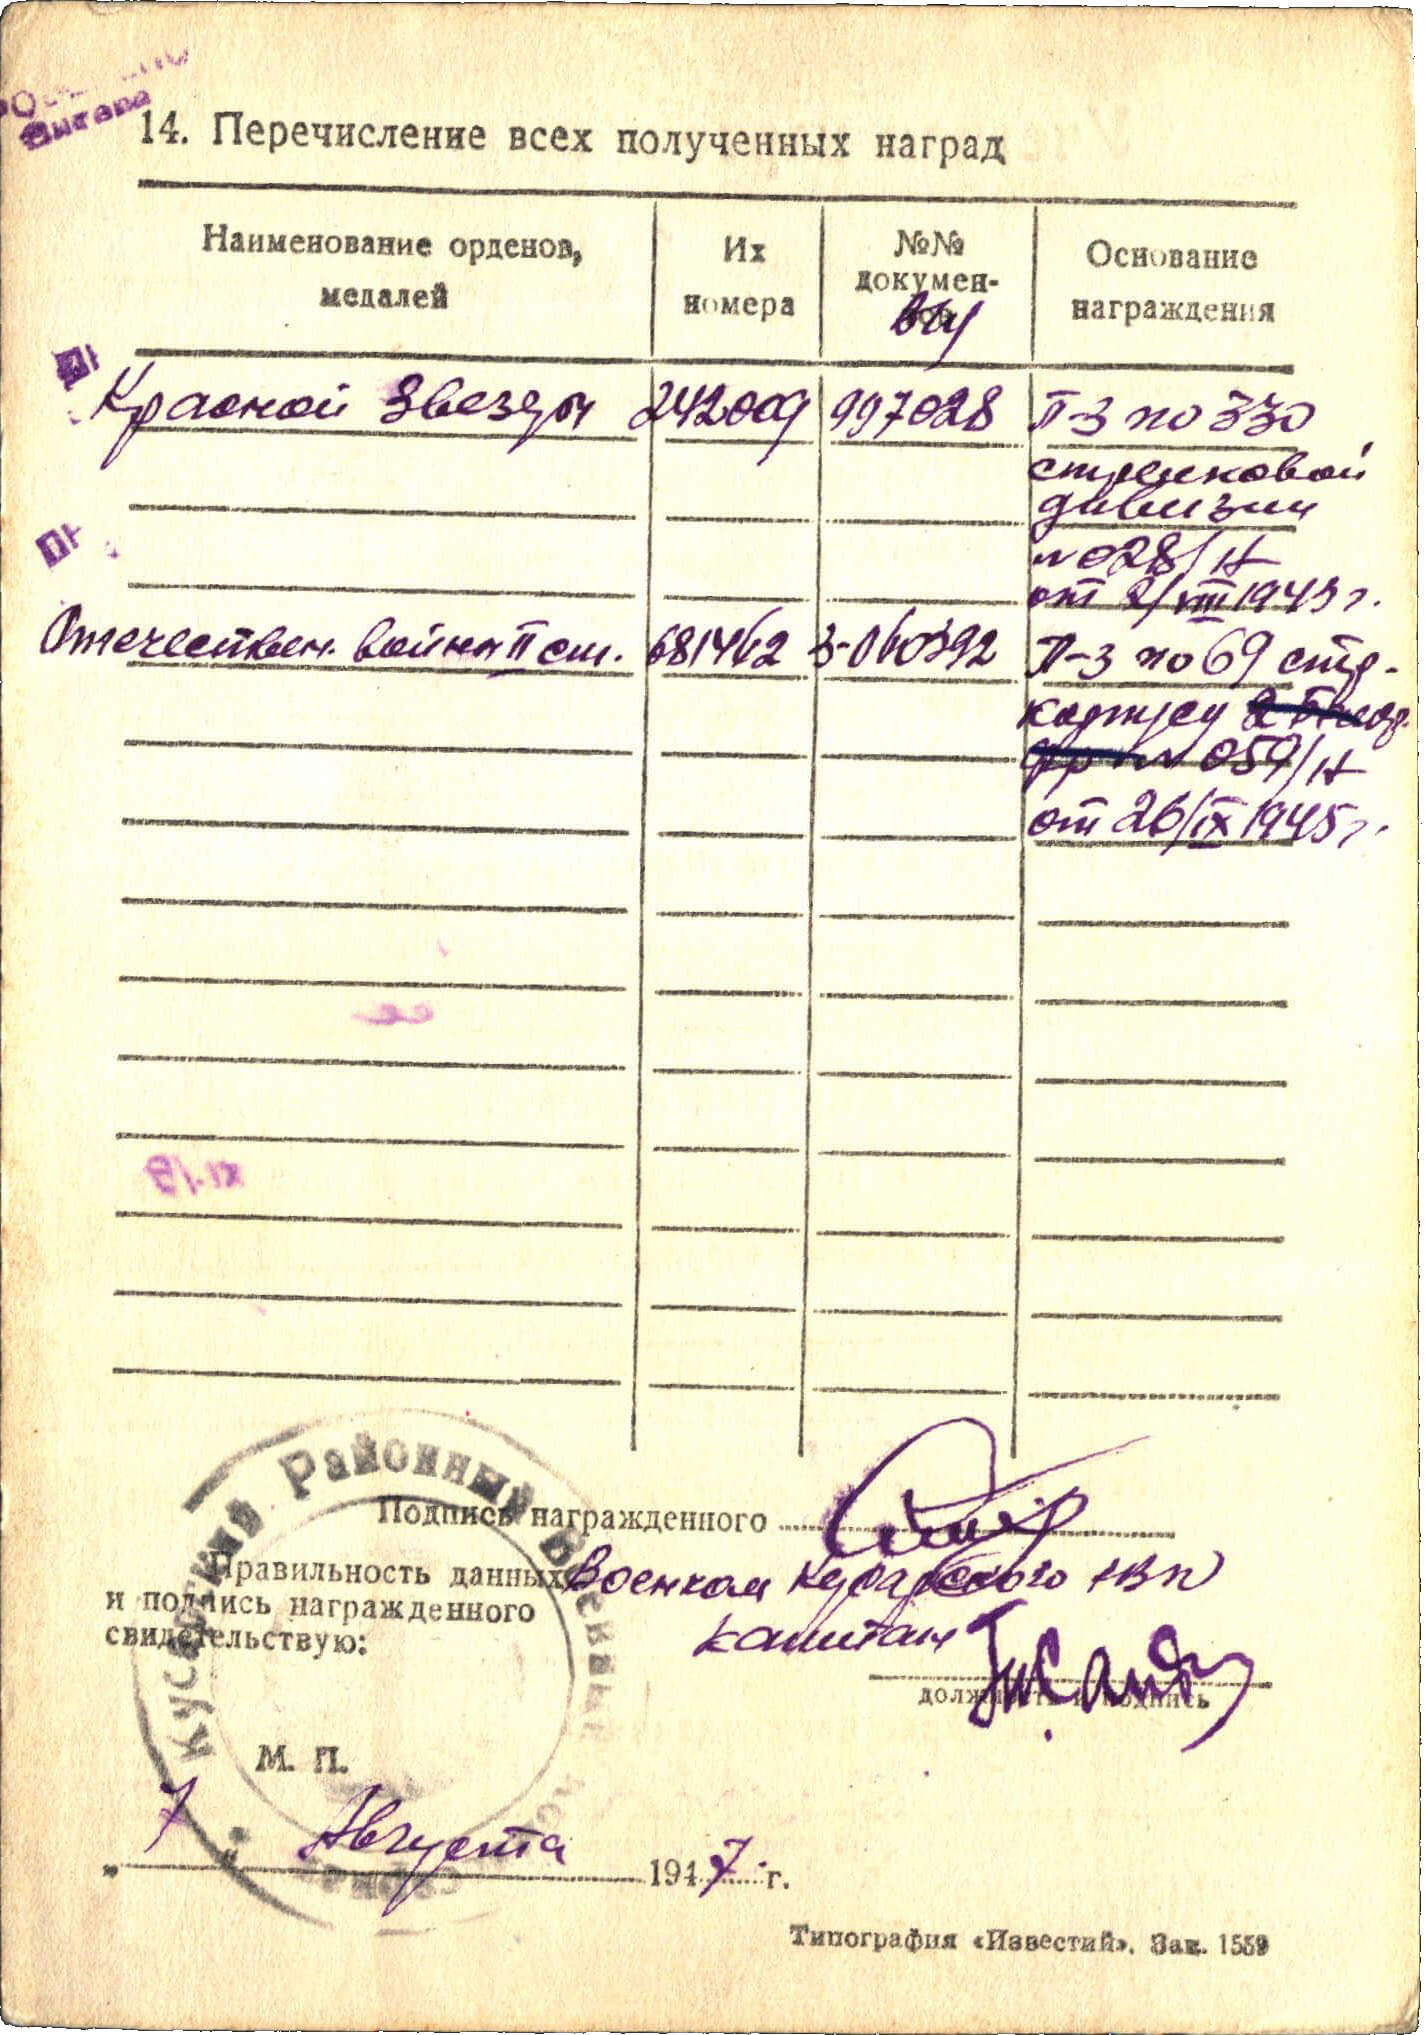 14. Перечисление всех полученных наград
Наименование орденов,
медалей
Их
номера
№№
докумен-
Основание
награждения
Красной Звезды 242009 997028 П-З по 330
стрелковой
дивизии
№ 028/Н
от 2/VIII 1943 г.
Отечествен. война II ст. 681462 З-060392 П-З по 69 стр.
корпусу
№ 059/Н
от 26/IX 1945 г.
Подпись награжденного
Правильность данных
и подпись награжденного
свидетельствую:
Военком Кусарского РВК
капитан
должность и подпись
Кусарский Районный Военный
М. П.
„ 7 " Августа 1947 г.
Типография «Известий». Зак. 1559